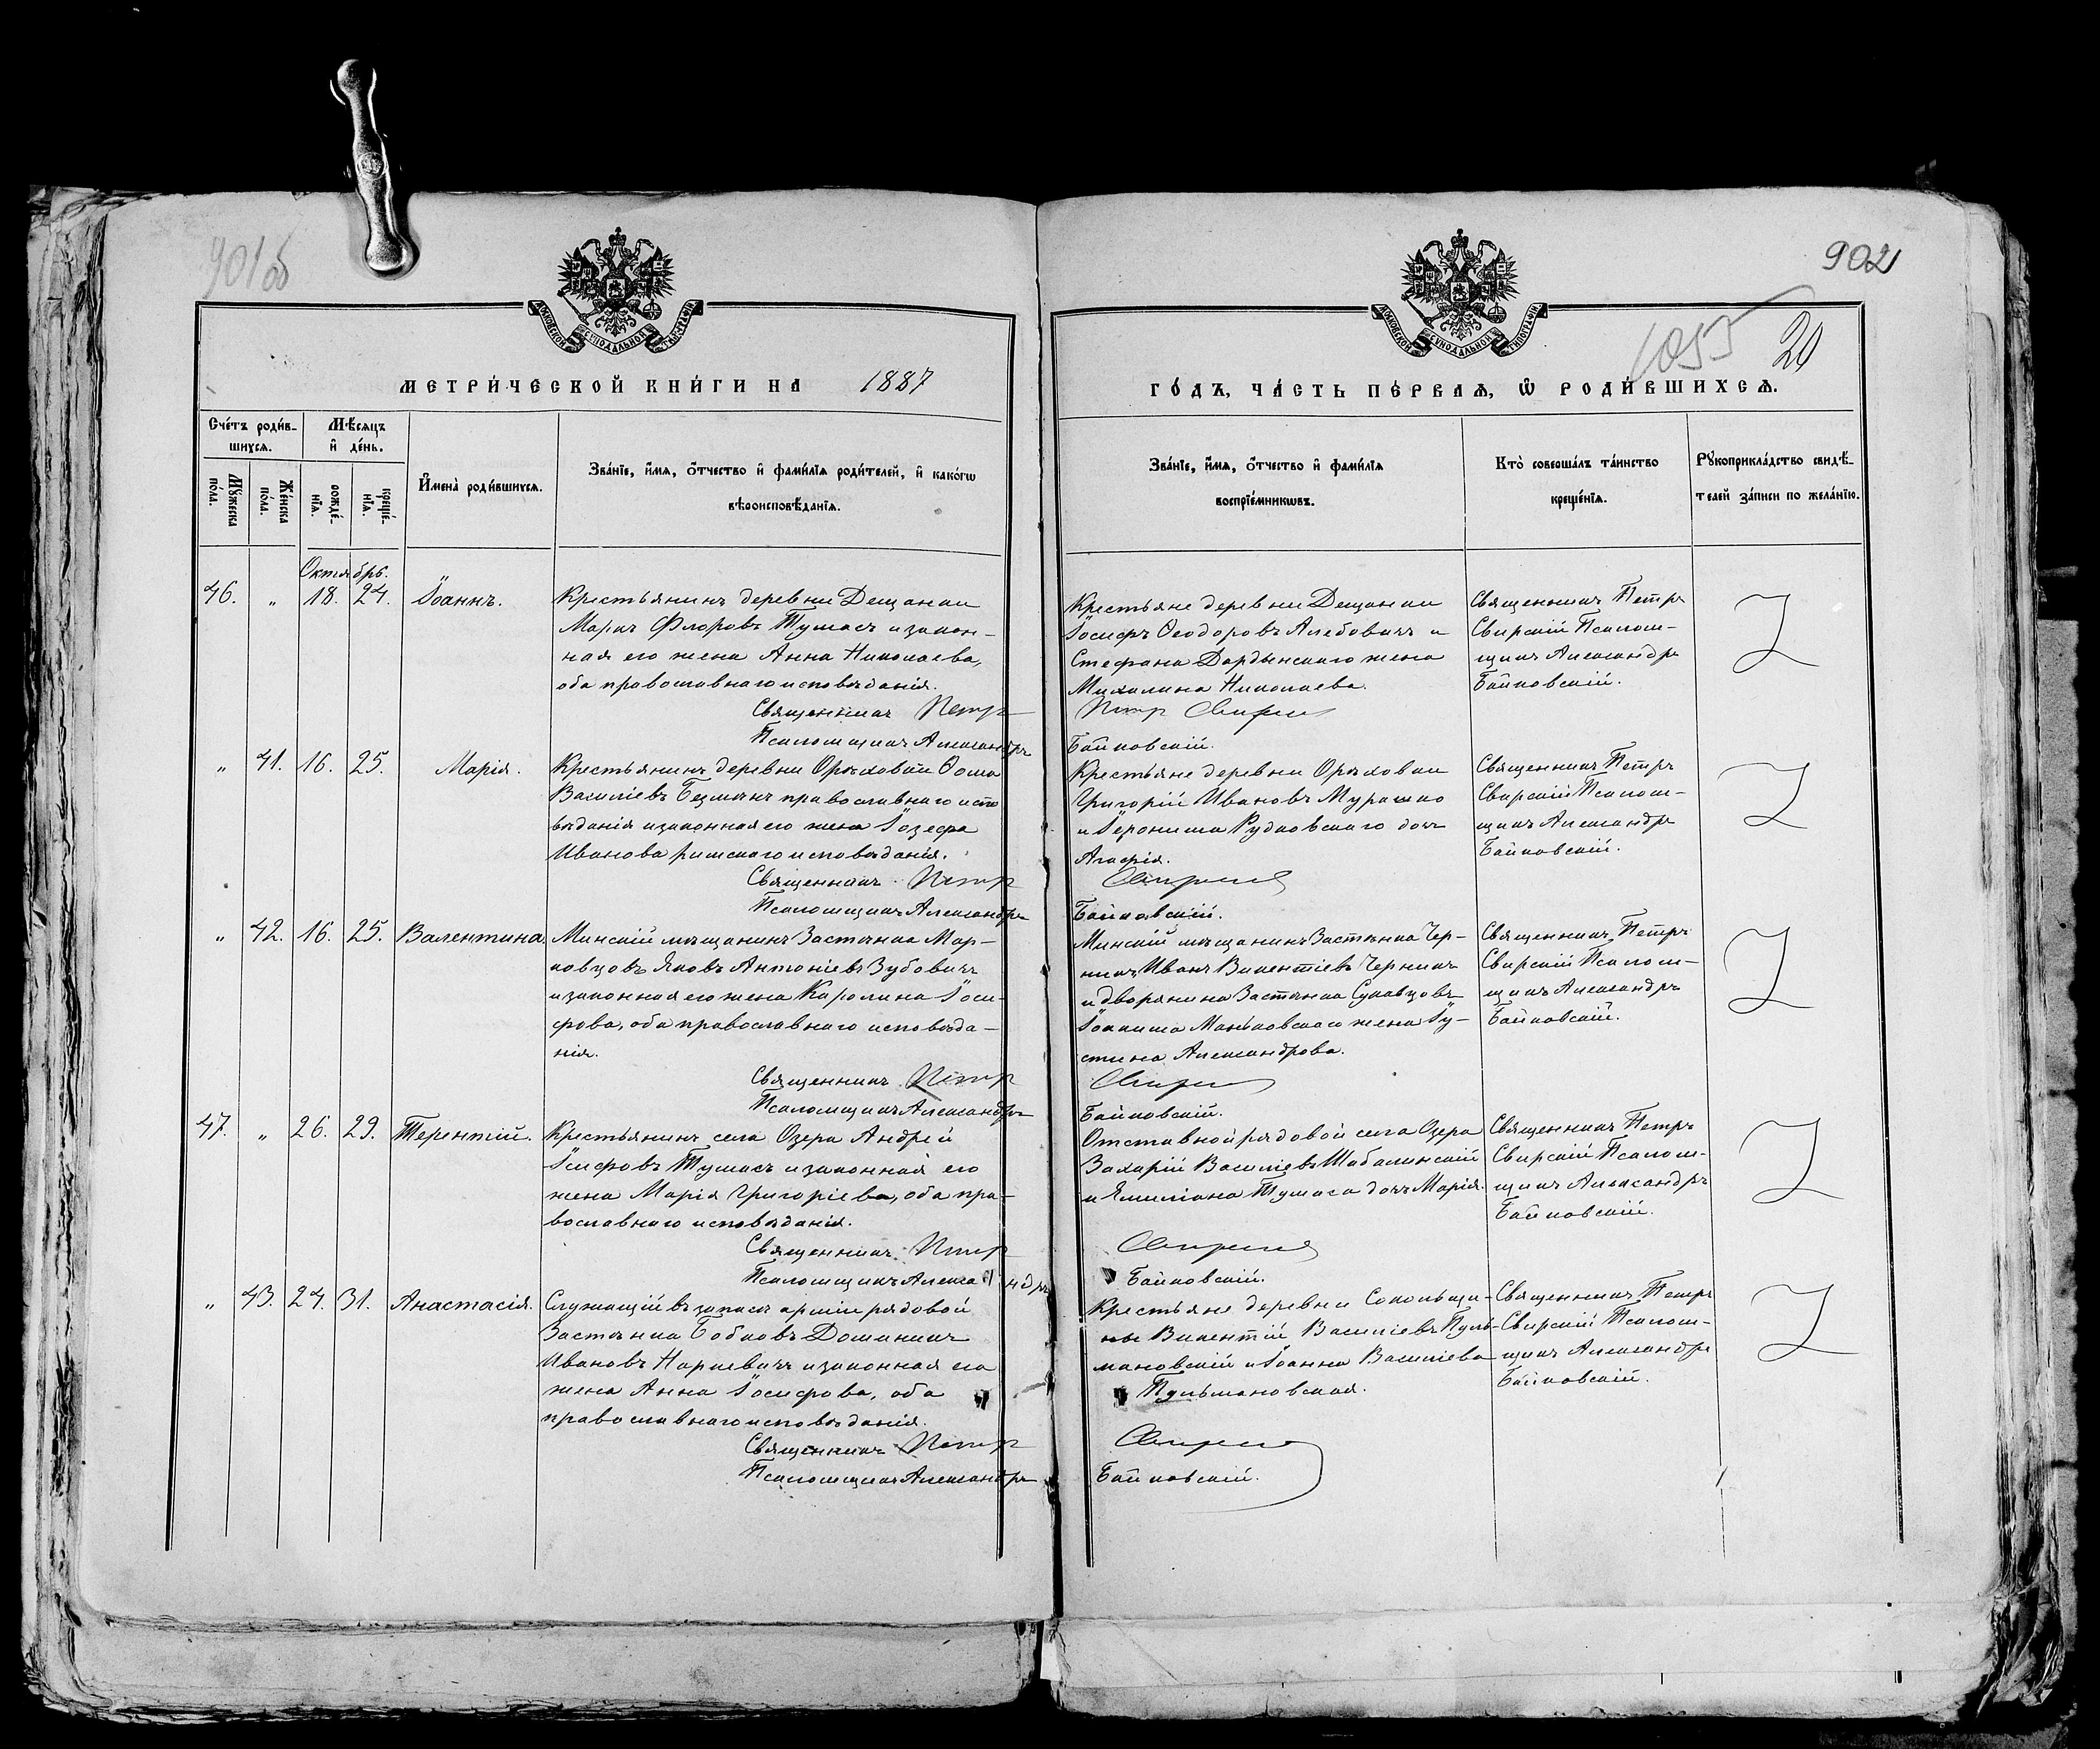 901об
902
1055
20
МОСКОВСКОЙ СѴНОДАЛЬНОЙ ТИПОГРАФІИ
МОСКОВСКОЙ СѴНОДАЛЬНОЙ ТИПОГРАФІИ
МЕТРИ́ЧЕСКОЙ КНИ́ГИ НА 1887
ГО́ДЪ, ЧА́СТЬ ПЕ́РВАѦ, Ѡ҆ РОДИ́ВШИХСѦ.
Сче́тъ роди́в-
шихся.
Мѣ́сяцъ
и҆ де́нь.
Мꙋ́жеска
по́ла.
Же́нска
по́ла.
рожде́-
нїя.
креще́-
нїя.
И҆мена̀ роди́вшихся.
Зва́нїе, и҆́мя, ѻ҆́тчество и҆ фамѝлїя роди́телей, и҆ како́гѡ
вѣроисповѣ́данїя.
Зва́нїе, и҆́мя, ѻ҆́тчество и҆ фами́лїя
воспрїе́мникѡвъ.
Кто̀ соверша́лъ та́инство
креще́нїя.
Рꙋкоприкла́дство свидѣ́-
телей за́писи по жела́нїю.
Октябрь.
46. " 18. 24. Іоаннъ.
Крестьянинъ деревни Дещанки
Маркъ Флоровъ Тумасъ и закон-
ная его жена Анна Николаева,
оба православнаго исповѣданія.
Священникъ Петръ
Псаломщикъ Александръ
Крестьяне деревни Дещанки
Іосифъ Ѳеодоровъ Алебовичъ и
Стефана Дардынскаго жена
Михалина Николаева.
Петр Свирскій
Байковскій.
Священникъ Петръ
Свирскій Псалом-
щикъ Александръ
Байковскій.
" 41. 16. 25. Марія.
Крестьянинъ деревни Орѣховки Ѳома
Василіевъ Безмѣнъ православнаго испо
вѣданія и законная его жена Іозефа
Иванова римскаго исповѣданія.
Священникъ Петр
Псаломщикъ Александръ
Крестьяне деревни Орѣховки
Григорій Ивановъ Мурашко
и Іеронима Рудковскаго дочь
Агафія.
Свирскій
Байковскій.
Священникъ Петръ
Свирскій Псалом-
щикъ Александръ
Байковскій.
" 42. 16. 25. Валентина.
Минскій мѣщанинъ Застѣнка Мар-
ковцовъ Яковъ Антоніевъ Зубовичъ
и законная его жена Каролина Іоси-
фова, оба православнаго исповѣда-
нія.
Священникъ Петр
Псаломщикъ Александръ
Минскій мѣщанинъ Застѣнка Чер-
никъ Иванъ Викентіевъ Черникъ
и дворянина Застѣнка Сукавцовъ
Іоакима Маньковскаго жена Іу-
стина Александрова.
Свирскій
Байковскій.
Священникъ Петръ
Свирскій Псалом-
щикъ Александръ
Байковскій.
47. " 26. 29. Терентій.
Крестьянинъ села Озера Андрей
Іосифовъ Тумасъ и законная его
жена Марія Григоріева, оба пра-
вославнаго исповѣданія.
Священникъ Петр
Псаломщикъ Александръ
Отставной рядовой села Озера
Захарій Василіевъ Шабалинскій
и Емиліана Тумаса дочь Марія.
Свирскій
Байковскій.
Священникъ Петръ
Свирскій Псалом-
щикъ Александръ
Байковскій.
" 43. 24. 31. Анастасія.
Служащій въ запасѣ арміи рядовой
Застѣнка Бобковъ Доминикъ
Ивановъ Наркевичъ и законная его
жена Анна Іосифова, оба
православнаго исповѣданія.
Священникъ Петр
Псаломщикъ Александръ
Крестьяне деревни Сокольщи-
ны Викентій Василіевъ Пуль-
мановскій и Іоанна Василіева
Пульмановская.
Свирскій
Байковскій.
Священникъ Петръ
Свирскій Псалом-
щикъ Александръ
Байковскій.